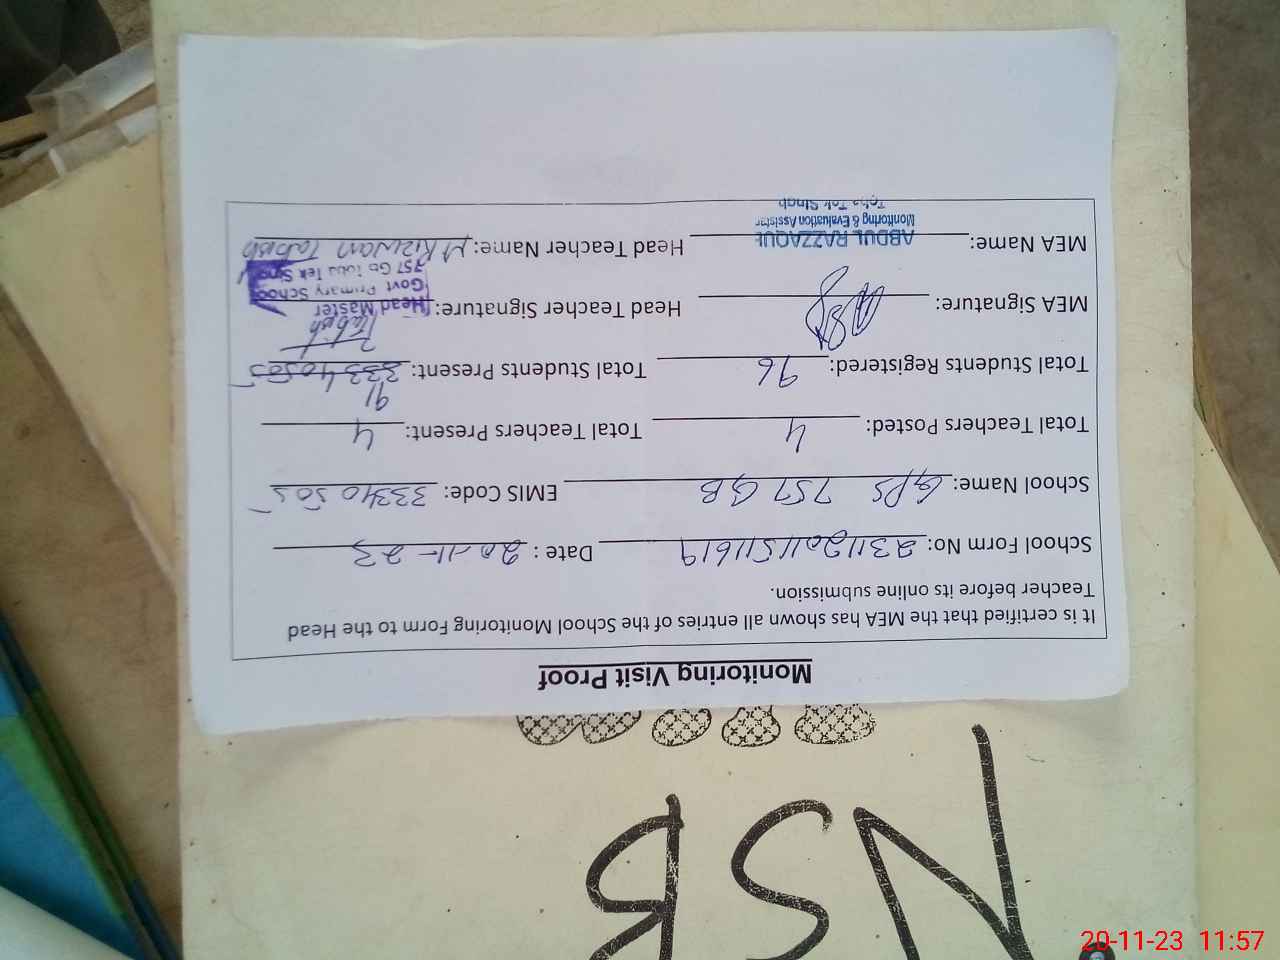 Monitoring Visit Proof
It is certified that the MEA has shown all entries of the School Monitoring Form to the Head
Teacher before its online submission.
School Form No: 2311201151619 Date : 20-11-23
School Name: GPS 757 GB EMIS Code: 33340505
Total Teachers Posted: 4 Total Teachers Present: 4
91
Total Students Registered: 96 Total Students Present: 33340505
Tabish
MEA Signature: Head Teacher Signature: Head Master
Govt Primary School
757 Gb Toba Tek Sing
MEA Name: ABDUL RAZZAQUE Head Teacher Name: M Rizwan Tabish
Monitoring & Evaluation Assistan
Toba Tek Singh
NSB
20-11-23 11:57